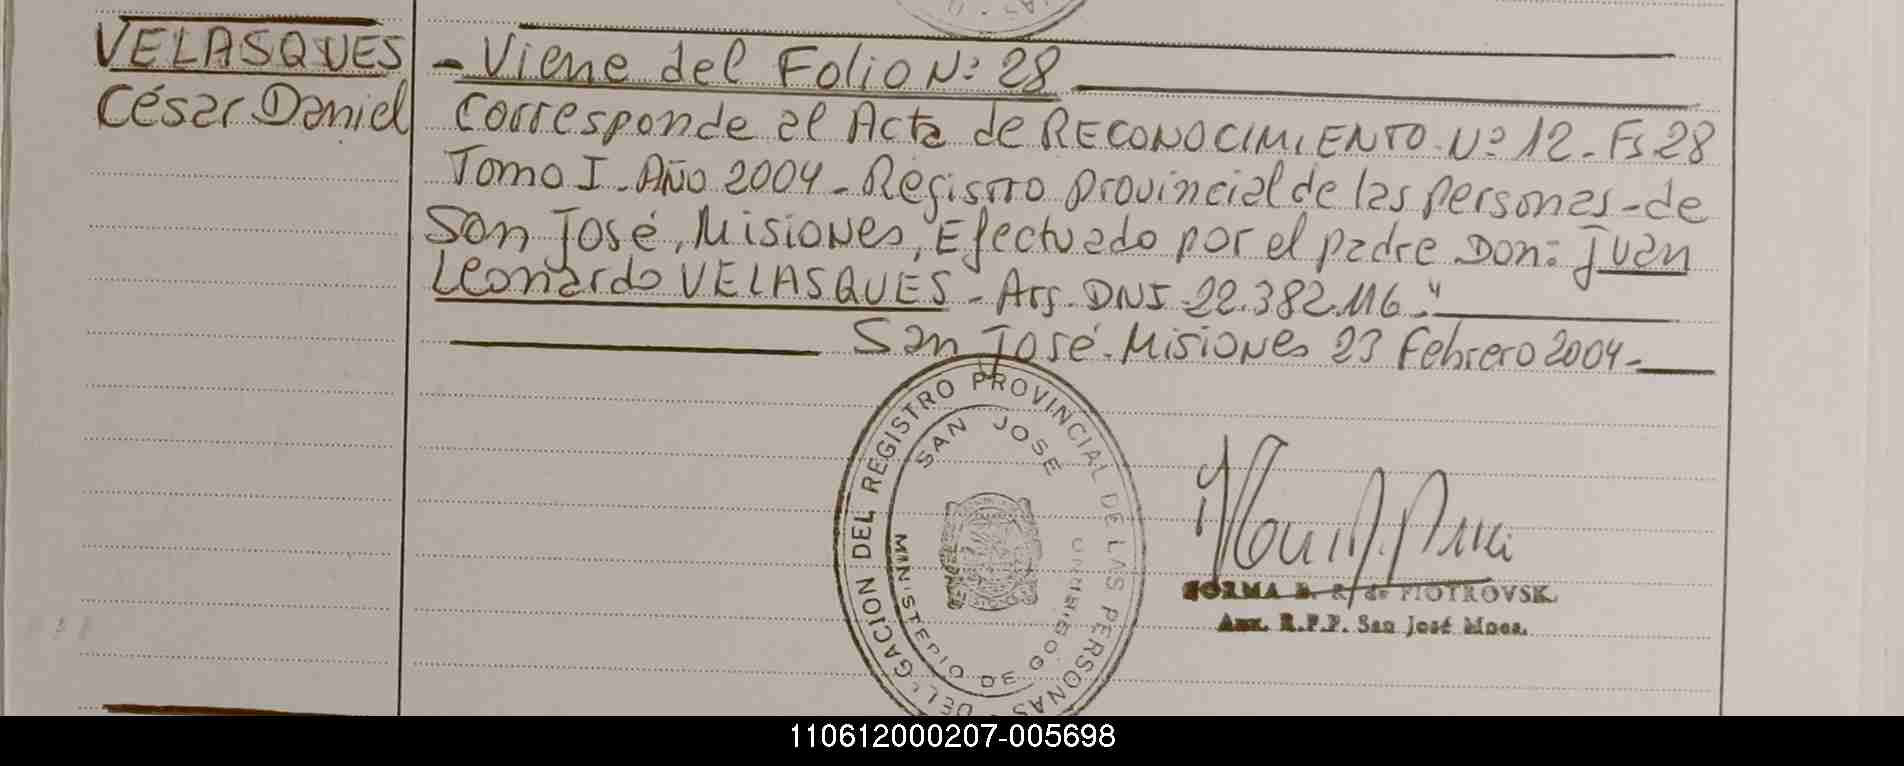 VELASQUES
César Daniel
- Viene del Folio Nº 28
Corresponde al Acta de RECONOCIMIENTO Nº 12 - Fs 28
Tomo I - Año 2004 - Registro Provincial de las Personas - de
San José, Misiones, Efectuado por el padre Don: Juan
Leonardo VELASQUES - Arg. DNI 22.382.116."
San José - Misiones 23 Febrero 2004 -
DELEGACION DEL REGISTRO PROVINCIAL DE LAS PERSONAS
SAN JOSE
MINISTERIO DE GOBIERNO
NORMA B. R. de PIOTROVSK.
Aux. R.P.P. San José Mnes.
110612000207-005698